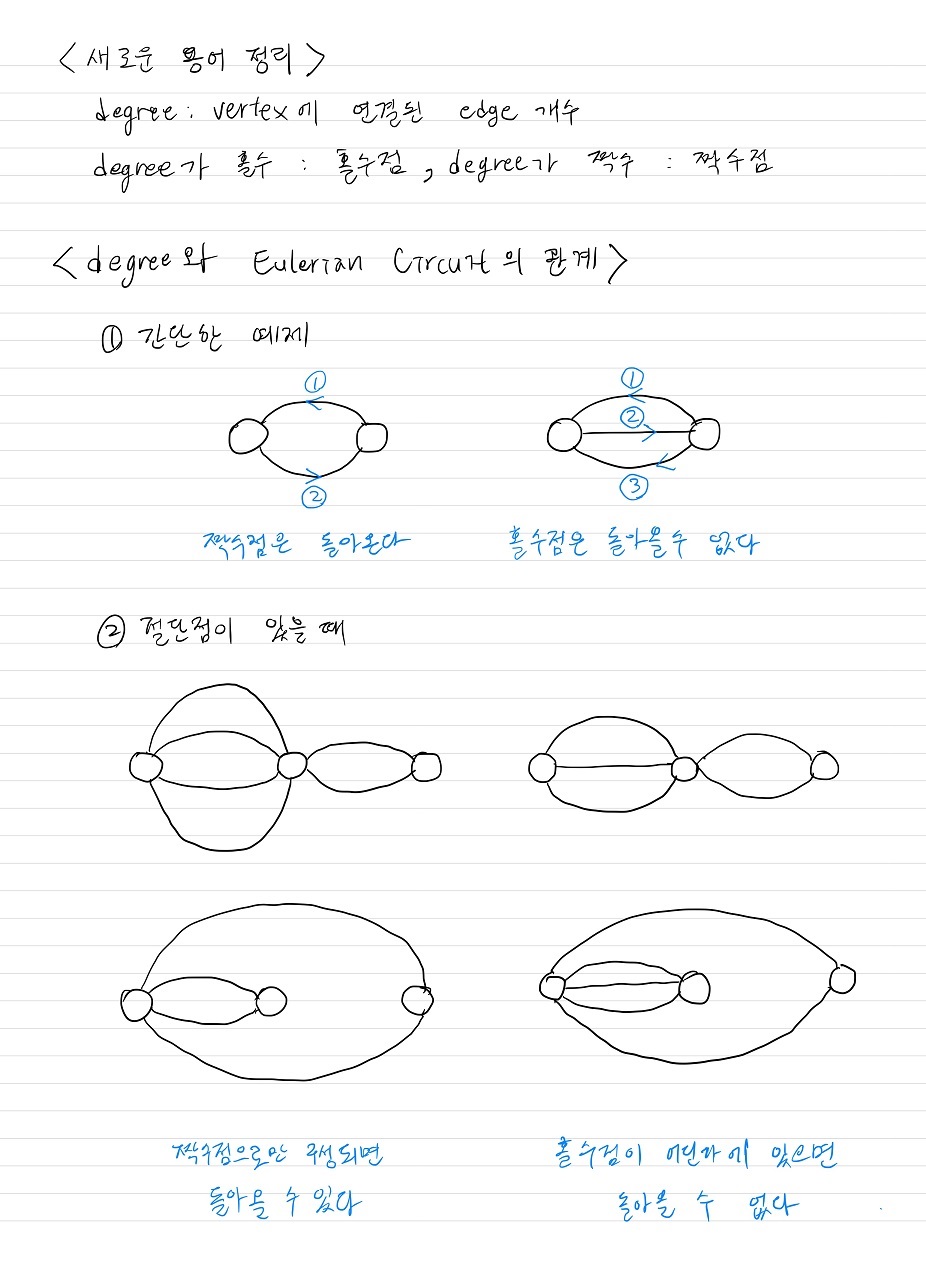 <새로운 용어 정리>
degree : vertex에 연결된 edge 개수
degree가 홀수 : 홀수점, degree가 짝수 : 짝수점
<degree와 Eulerian Circuit의 관계>
① 간단한 예제
① ①
②
② ③
짝수점은 돌아온다 홀수점은 돌아올 수 없다
② 절단점이 있을 때
짝수점으로만 구성되면 홀수점이 어딘가에 있으면
돌아올 수 있다 돌아올 수 없다